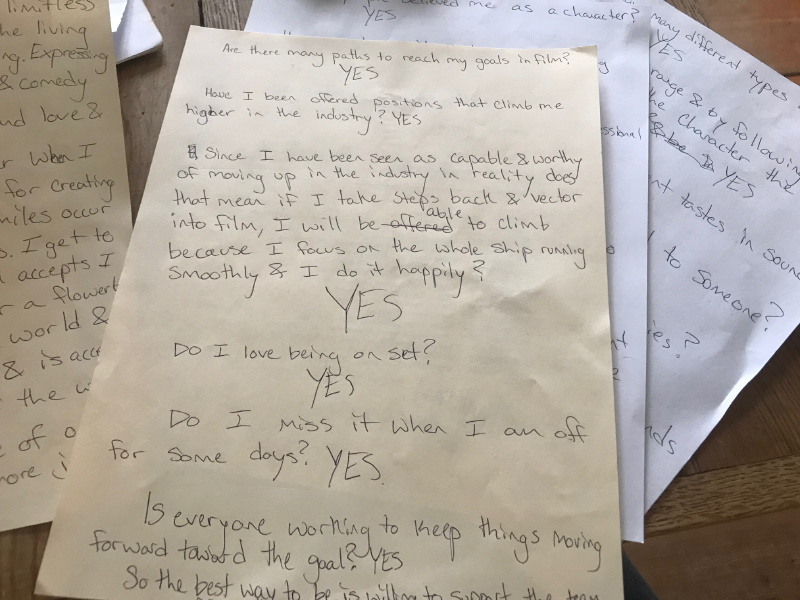 limitless
the living
ng. Expressing
& comedy
and love &
r when I
for creating
miles occur
s. I get to
accepts I
r a flower
world &
& is acc
the w
e of o
more
Are there many paths to reach my goals in film?
YES
Have I been offered positions that climb me
higher in the industry? YES
Since I have been seen as capable & worthy
of moving up in the industry in reality does
that mean if I take steps back & vector
into film, I will be offered able to climb
because I focus on the whole ship running
smoothly & I do it happily?
YES
Do I love being on set?
YES
Do I miss it when I am off
for some days? YES.
Is everyone working to keep things moving
forward toward the goal? YES
So the best way to be is willing to support the team
believed me as a character?
YES
ssional
many different types
YES
range & by following
the character the
& be YES
nt tastes in sound
to someone?
ies?
nds